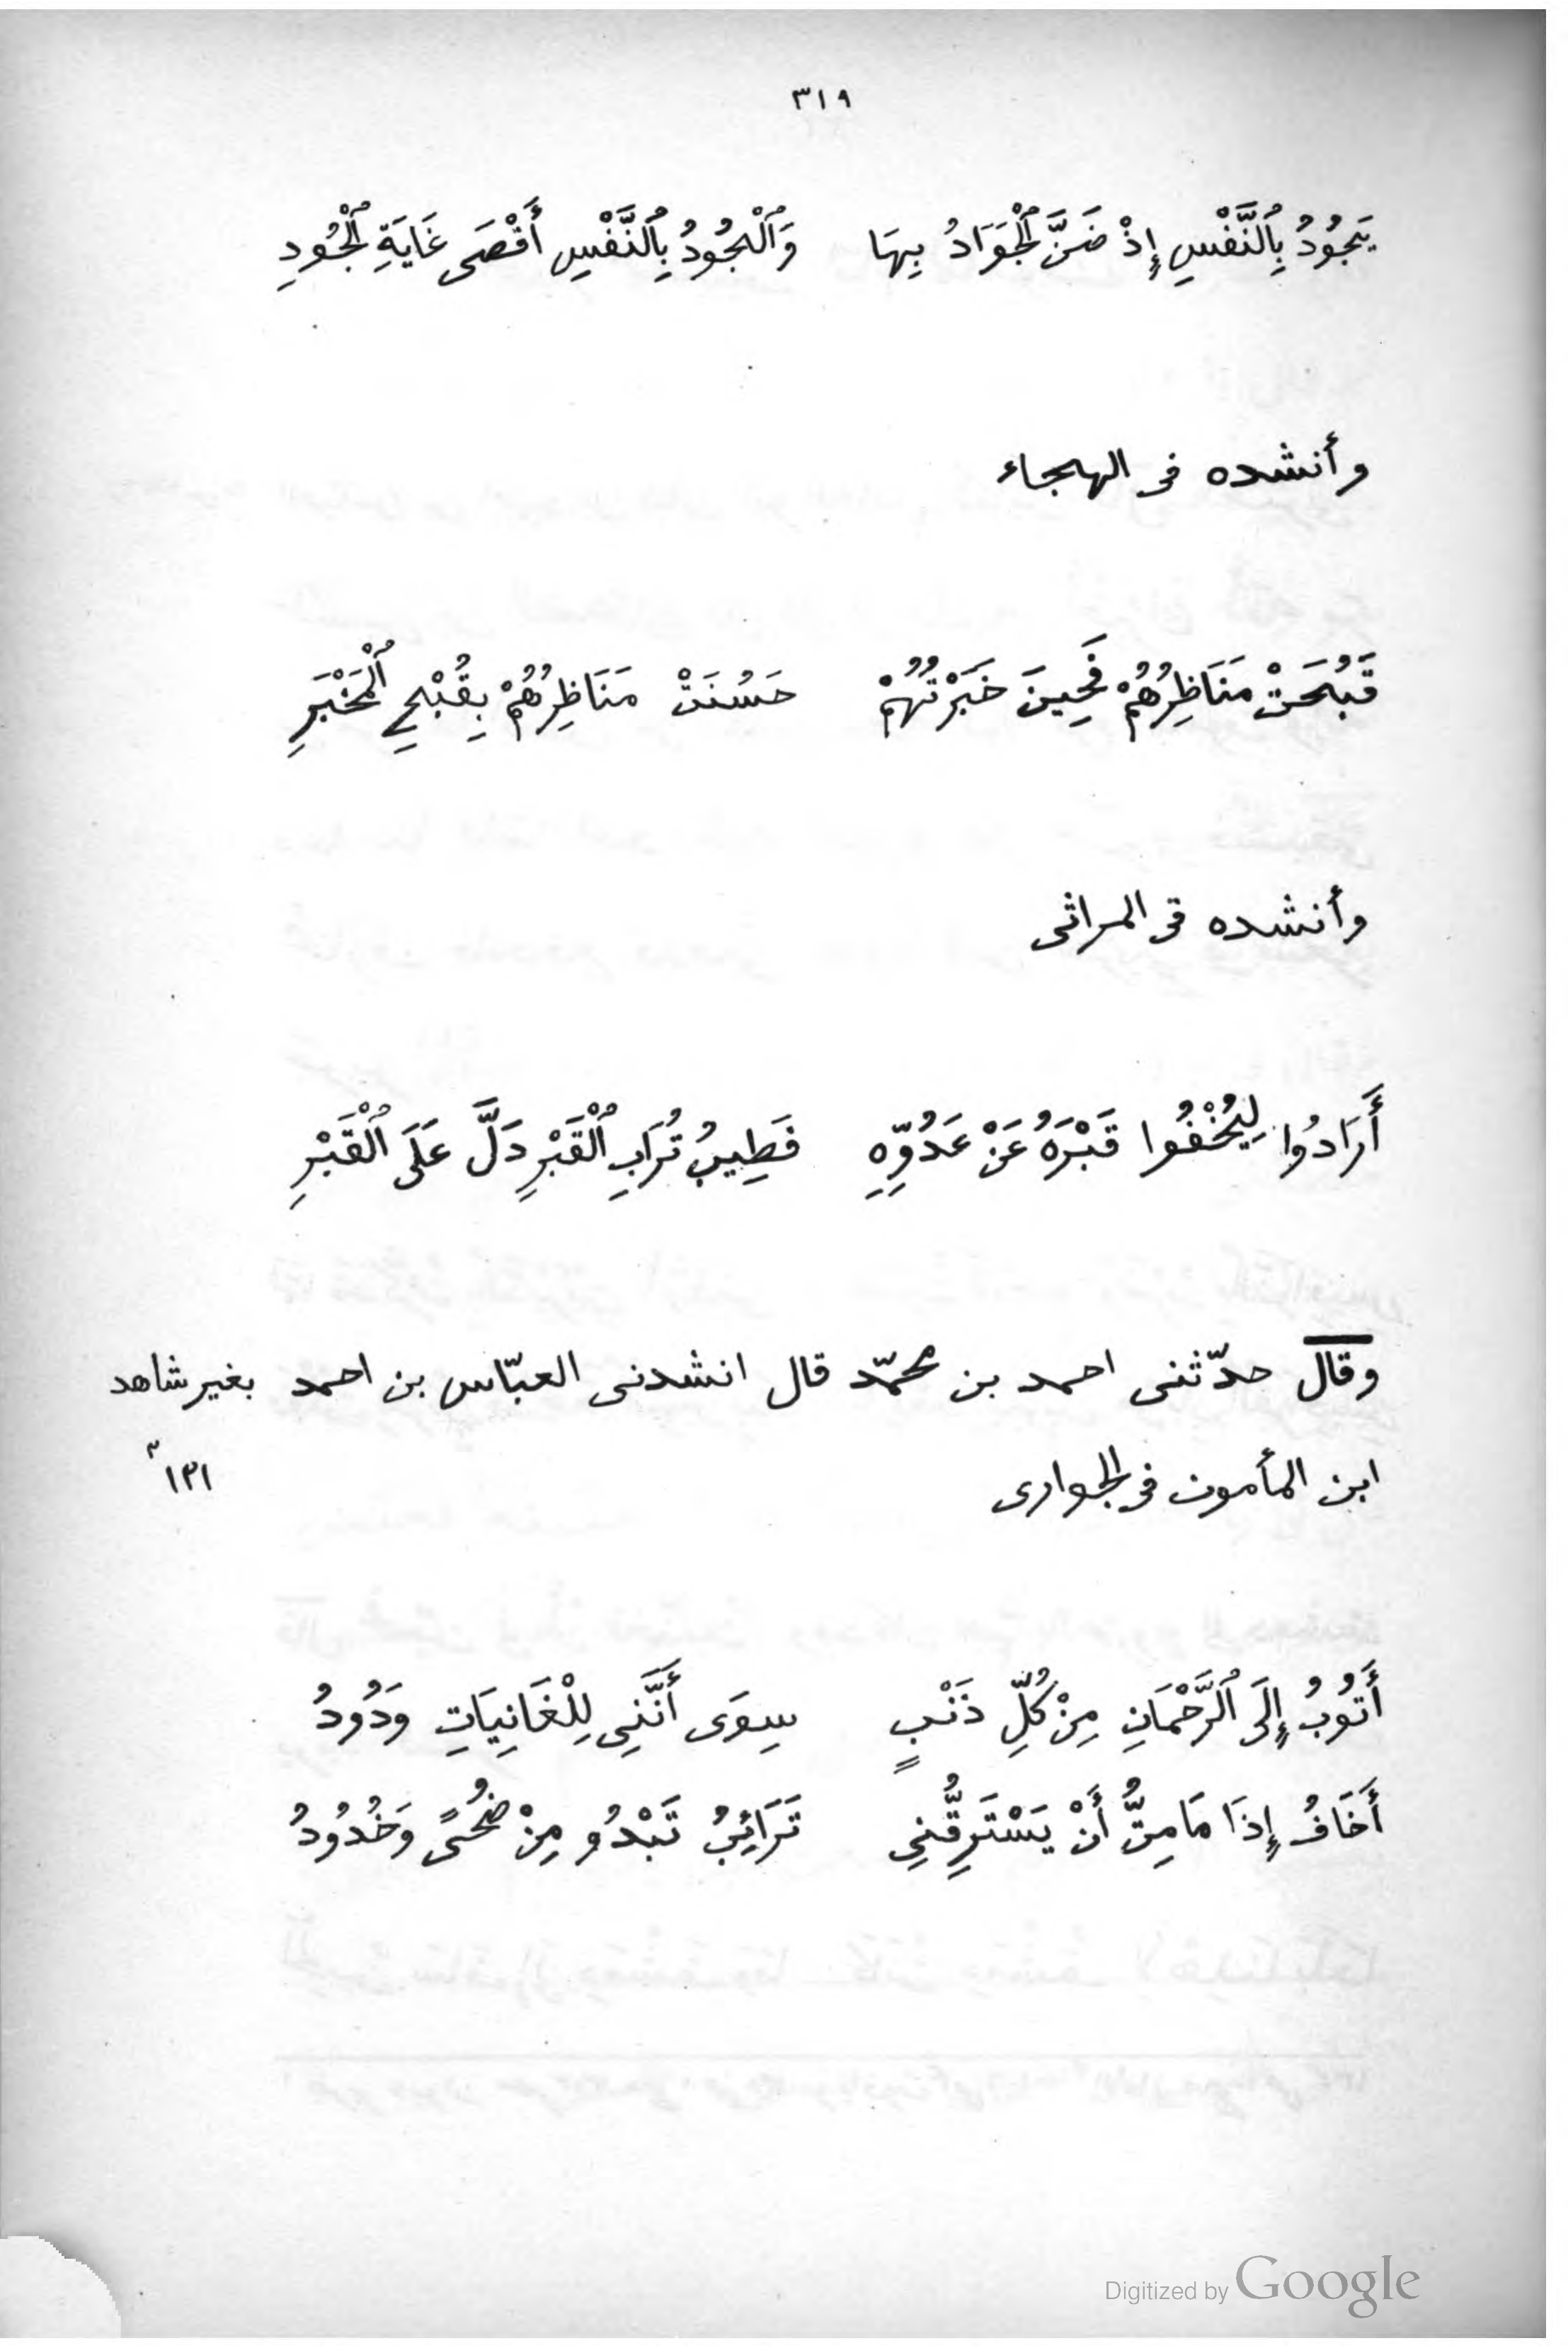 ٣١٩
يَجُودُ بِٱلنَّفْسِ إِذْ ضَنَّ ٱلْجَوَادُ بِهَا وَٱلْجُودُ بِٱلنَّفْسِ أَقْصَى غَايَةِ ٱلْجُودِ
وأنشده فى الهجاء
قَبُحَتْ مَنَاظِرُهُمْ فَحِينَ خَبَرْتُهُمْ حَسُنَتْ مَنَاظِرُهُمْ بِقُبْحِ ٱلْمَخْبَرِ
وأنشده فى المراثى
أَرَادُوا لِيُخْفُوا قَبْرَهُ عَنْ عَدُوِّهِ فَطِيبُ تُرَابِ ٱلْقَبْرِ دَلَّ عَلَى ٱلْقَبْرِ
وقال حدّثنى احمد بن محمّد قال انشدنى العبّاس بن احمد بغير شاهد
ابن المأمون فى الجوارى ١٣١
أَتُوبُ إِلَى ٱلرَّحْمَانِ مِنْ كُلِّ ذَنْبٍ سِوَى أَنَّنِى لِلْغَانِيَاتِ وَدُودُ
أَخَافُ إِذَا مَا مِتُّ أَنْ يَسْتَرِقُّنِى تَرَائِبُ تَبْدُو مِنْ ضُحًى وَخُدُودُ
Digitized by Google